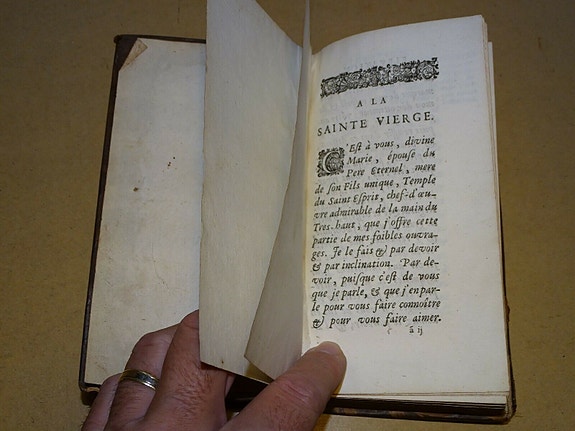 A LA
SAINTE VIERGE.
C'Est à vous, divine
Marie, épouse du
Pere Eternel, mere
de ſon Fils unique, Temple
du Saint Esprit, chef-d'œu-
vre admirable de la main du
Tres-haut, que j'offre cette
partie de mes foibles ouvra-
ges. Je le fais & par devoir
& par inclination. Par de-
voir, puiſque c'eſt de vous
que je parle, & que j'en par-
le pour vous faire connoître
& pour vous faire aimer.
ã ij